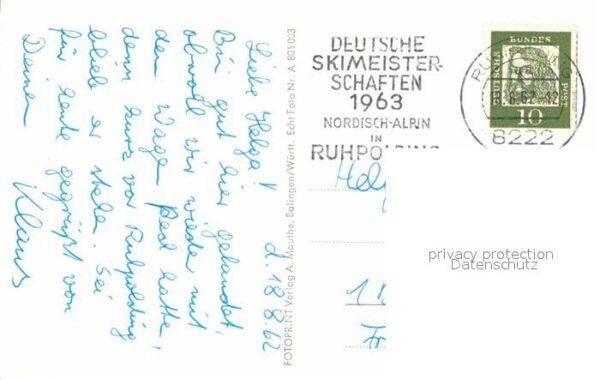 Liebe Helga! d. 18.8.62
Bin gut hier gelandet,
obwohl wir wieder mit
den Wagen Pech hatte,
denn kurz vor Ruhpolding
blieb er stehn. Sei
für heute gegrüßt von
Deinem
Klaus
FOTOPRINT Verlag A. Mauthe, Balingen/Württ. Echt Foto Nr. A 805003
DEUTSCHE
SKIMEISTER-
SCHAFTEN
1963
NORDISCH-ALPIN
IN
RUHPOLDING
8222
DEUTSCHE BUNDESPOST
10
Helg
1
privacy protection
Datenschutz